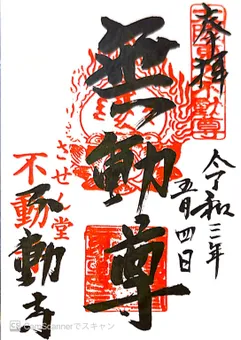 奉拝
無動尊
令和三年
五月四日
させん堂
不動
不動寺
CamScannerでスキャン